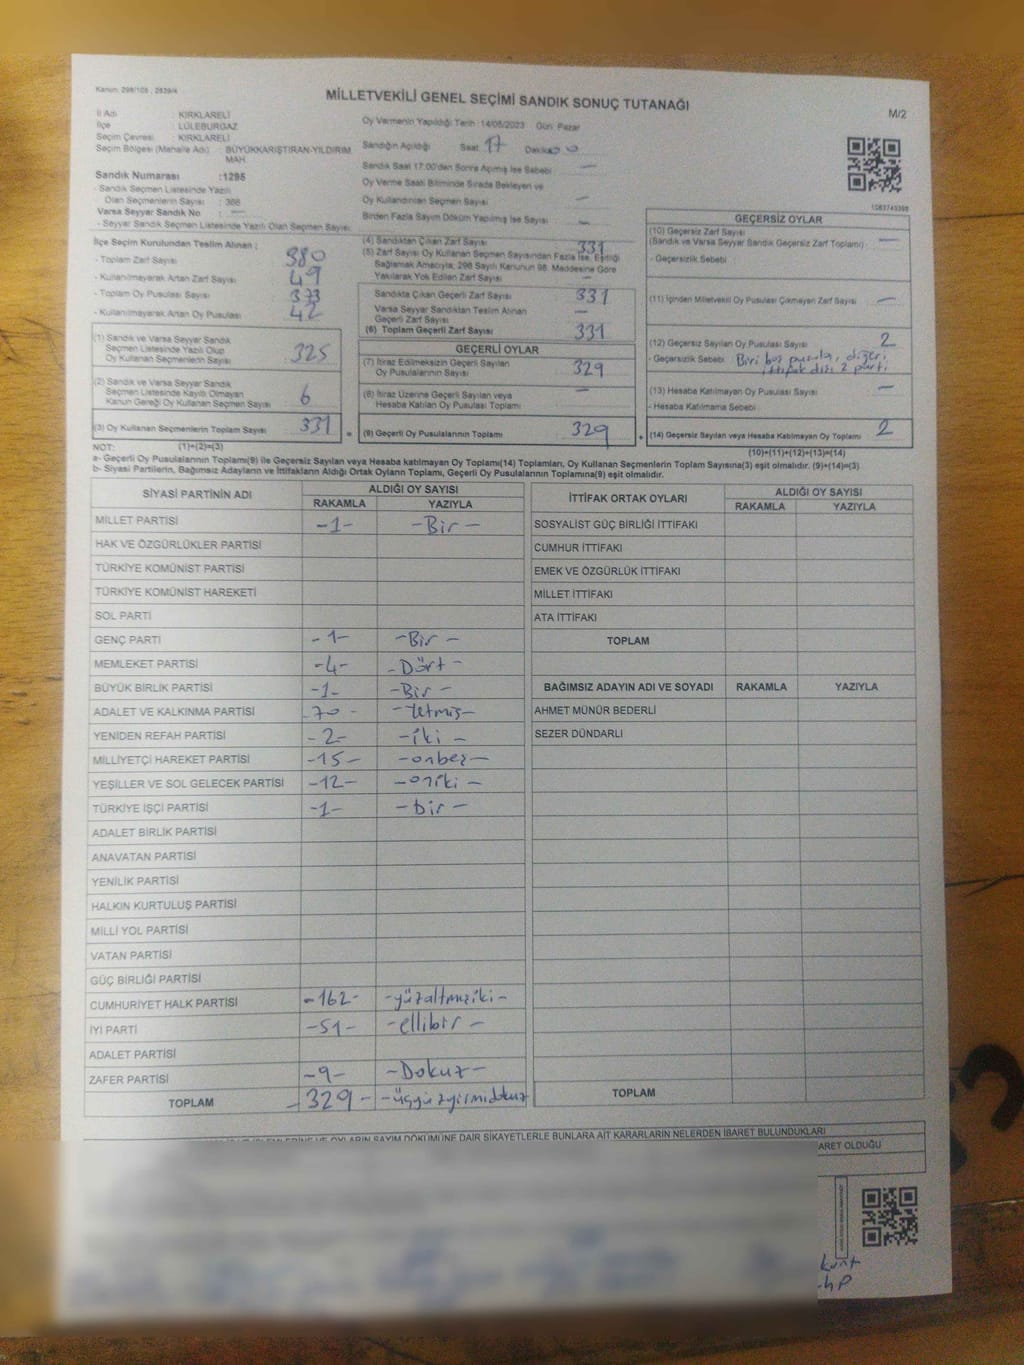 Kanun: 298/105 , 2839/4
MİLLETVEKİLİ GENEL SEÇİMİ SANDIK SONUÇ TUTANAĞI
M/2
İl Adı : KIRKLARELİ
İlçe : LÜLEBURGAZ
Seçim Çevresi : KIRKLARELİ
Seçim Bölgesi (Mahalle Adı) : BÜYÜKKARIŞTIRAN-YILDIRIM
MAH
Sandık Numarası :1295
- Sandık Seçmen Listesinde Yazılı
Olan Seçmenlerin Sayısı : 366
Varsa Seyyar Sandık No : —
- Seyyar Sandık Seçmen Listesinde Yazılı Olan Seçmen Sayısı:
Oy Vermenin Yapıldığı Tarih :14/05/2023 Gün: Pazar
Sandığın Açıldığı Saat 17 Dakika 00
Sandık Saat 17:00'den Sonra Açılmış İse Sebebi : —
Oy Verme Saati Bitiminde Sırada Bekleyen ve
Oy Kullandırılan Seçmen Sayısı : —
Birden Fazla Sayım Döküm Yapılmış İse Sayısı : —
İlçe Seçim Kurulundan Teslim Alınan ;
- Toplam Zarf Sayısı : 380
- Kullanılmayarak Artan Zarf Sayısı : 49
- Toplam Oy Pusulası Sayısı : 373
- Kullanılmayarak Artan Oy Pusulası : 42
(1) Sandık ve Varsa Seyyar Sandık
Seçmen Listesinde Yazılı Olup
Oy Kullanan Seçmenlerin Sayısı : 325
(2) Sandık ve Varsa Seyyar Sandık
Seçmen Listesinde Kayıtlı Olmayan
Kanun Gereği Oy Kullanan Seçmen Sayısı : 6
(3) Oy Kullanan Seçmenlerin Toplam Sayısı : 331
(4) Sandıktan Çıkan Zarf Sayısı : 331
(5) Zarf Sayısı Oy Kullanan Seçmen Sayısından Fazla İse, Eşitliği
Sağlamak Amacıyla, 298 Sayılı Kanunun 98. Maddesine Göre
Yakılarak Yok Edilen Zarf Sayısı : —
Sandıkta Çıkan Geçerli Zarf Sayısı : 331
Varsa Seyyar Sandıktan Teslim Alınan
Geçerli Zarf Sayısı : —
(6) Toplam Geçerli Zarf Sayısı : 331
GEÇERLİ OYLAR
(7) İtiraz Edilmeksizin Geçerli Sayılan
Oy Pusulalarının Sayısı : 329
(8) İtiraz Üzerine Geçerli Sayılan veya
Hesaba Katılan Oy Pusulası Toplamı : —
= (9) Geçerli Oy Pusulalarının Toplamı : 329
1083749399
GEÇERSİZ OYLAR
(10) Geçersiz Zarf Sayısı
(Sandık ve Varsa Seyyar Sandık Geçersiz Zarf Toplamı) : —
- Geçersizlik Sebebi :
(11) İçinden Milletvekili Oy Pusulası Çıkmayan Zarf Sayısı : —
(12) Geçersiz Sayılan Oy Pusulası Sayısı : 2
- Geçersizlik Sebebi : Biri boş pusula, diğeri
ittifak dışı 2 parti
(13) Hesaba Katılmayan Oy Pusulası Sayısı : —
- Hesaba Katılmama Sebebi :
+ (14) Geçersiz Sayılan veya Hesaba Katılmayan Oy Toplamı : 2
NOT: (1)+(2)=(3)
(10)+(11)+(12)+(13)=(14)
a- Geçerli Oy Pusulalarının Toplamı(9) ile Geçersiz Sayılan veya Hesaba katılmayan Oy Toplamı(14) Toplamları, Oy Kullanan Seçmenlerin Toplam Sayısına(3) eşit olmalıdır. (9)+(14)=(3)
b- Siyasi Partilerin, Bağımsız Adayların ve İttifakların Aldığı Oyların Toplamı, Geçerli Oy Pusulalarının Toplamına(9) eşit olmalıdır.
SİYASİ PARTİNİN ADI ALDIĞI OY SAYISI
RAKAMLA YAZIYLA
MİLLET PARTİSİ -1- -Bir-
HAK VE ÖZGÜRLÜKLER PARTİSİ
TÜRKİYE KOMÜNİST PARTİSİ
TÜRKİYE KOMÜNİST HAREKETİ
SOL PARTİ
GENÇ PARTİ -1- -Bir-
MEMLEKET PARTİSİ -4- -Dört-
BÜYÜK BİRLİK PARTİSİ -1- -Bir-
ADALET VE KALKINMA PARTİSİ -70- -Yetmiş-
YENİDEN REFAH PARTİSİ -2- -iki-
MİLLİYETÇİ HAREKET PARTİSİ -15- -onbeş-
YEŞİLLER VE SOL GELECEK PARTİSİ -12- -oniki-
TÜRKİYE İŞÇİ PARTİSİ -1- -bir-
ADALET BİRLİK PARTİSİ
ANAVATAN PARTİSİ
YENİLİK PARTİSİ
HALKIN KURTULUŞ PARTİSİ
MİLLİ YOL PARTİSİ
VATAN PARTİSİ
GÜÇ BİRLİĞİ PARTİSİ
CUMHURİYET HALK PARTİSİ -162- -yüzaltmışiki-
İYİ PARTİ -51- -ellibir-
ADALET PARTİSİ
ZAFER PARTİSİ -9- -Dokuz-
TOPLAM -329- -üçyüzyirmidokuz
İTTİFAK ORTAK OYLARI ALDIĞI OY SAYISI
RAKAMLA YAZIYLA
SOSYALİST GÜÇ BİRLİĞİ İTTİFAKI
CUMHUR İTTİFAKI
EMEK VE ÖZGÜRLÜK İTTİFAKI
MİLLET İTTİFAKI
ATA İTTİFAKI
TOPLAM
BAĞIMSIZ ADAYIN ADI VE SOYADI RAKAMLA YAZIYLA
AHMET MÜNÜR BEDERLİ
SEZER DÜNDARLI
TOPLAM
İŞLEMLERİNE VE OYLARIN SAYIM DÖKÜMÜNE DAİR ŞİKAYETLERLE BUNLARA AİT KARARLARIN NELERDEN İBARET BULUNDUKLARI
ARET OLDUĞU